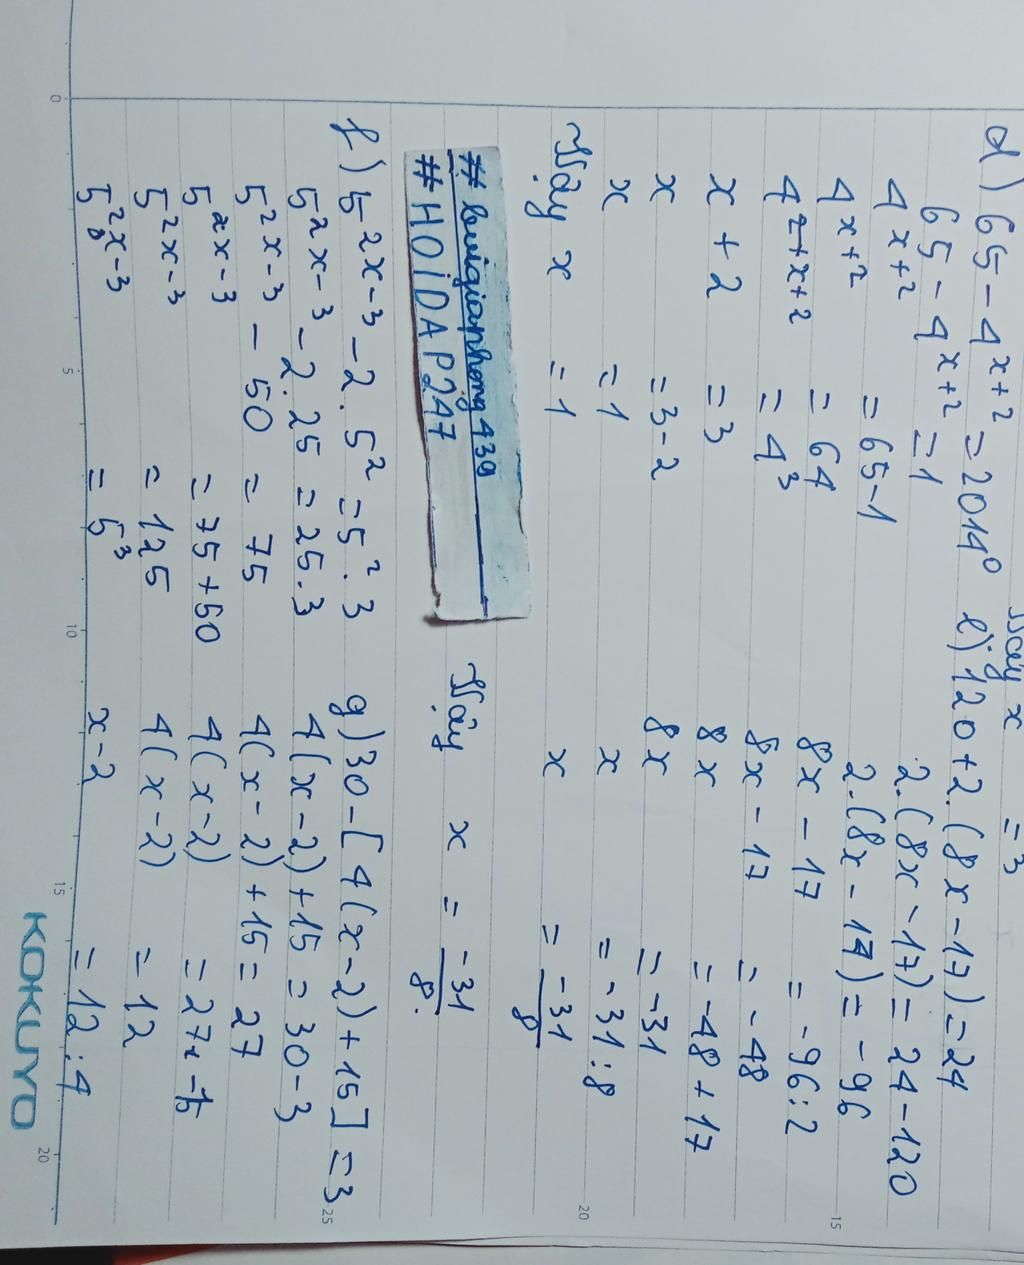 Vậy x = 3
d) 65 - 4^{x+2} = 2014^0
65 - 4^{x+2} = 1
4^{x+2} = 65-1
4^{x+2} = 64
4^{x+2} = 4^3
x + 2 = 3
x = 3-2
x = 1
Vậy x = 1
e) 120 + 2.(8x-17) = 24
2.(8x-17) = 24-120
2.(8x-17) = -96
8x - 17 = -96:2
8x - 17 = -48
8x = -48+17
8x = -31
x = -31:8
x = \frac{-31}{8}
Vậy x = \frac{-31}{8}.
# buigiaphong439
# HOIDAP247
f) 5^{2x-3} - 2.5^2 = 5^2.3
5^{2x-3} - 2.25 = 25.3
5^{2x-3} - 50 = 75
5^{2x-3} = 75+50
5^{2x-3} = 125
5^{2x-3} = 5^3
g) 30-[4(x-2)+15] = 3
4(x-2)+15 = 30-3
4(x-2)+15 = 27
4(x-2) = 27-15
4(x-2) = 12
x-2 = 12:4
0
5
10
15
20
15
20
25
KOKUYO